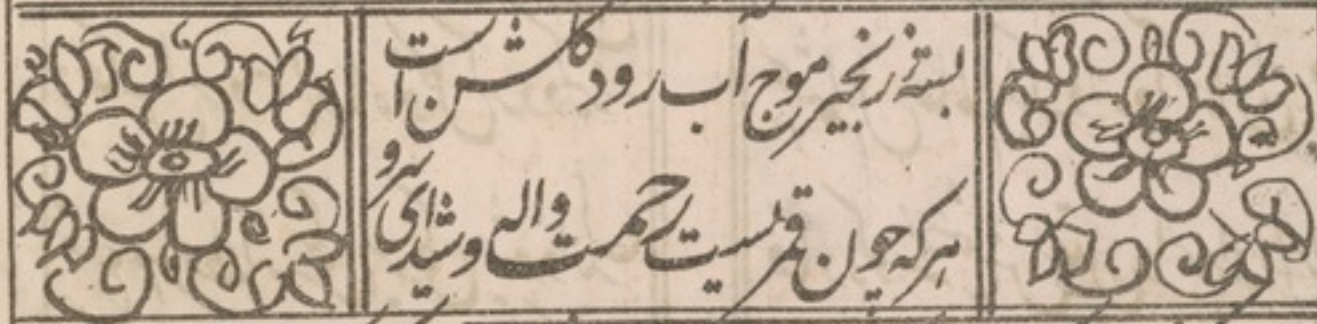 بسته زنجیر موج آب رود گلشن است
هر که چون قمریست رحمت واله و شیدای سرو